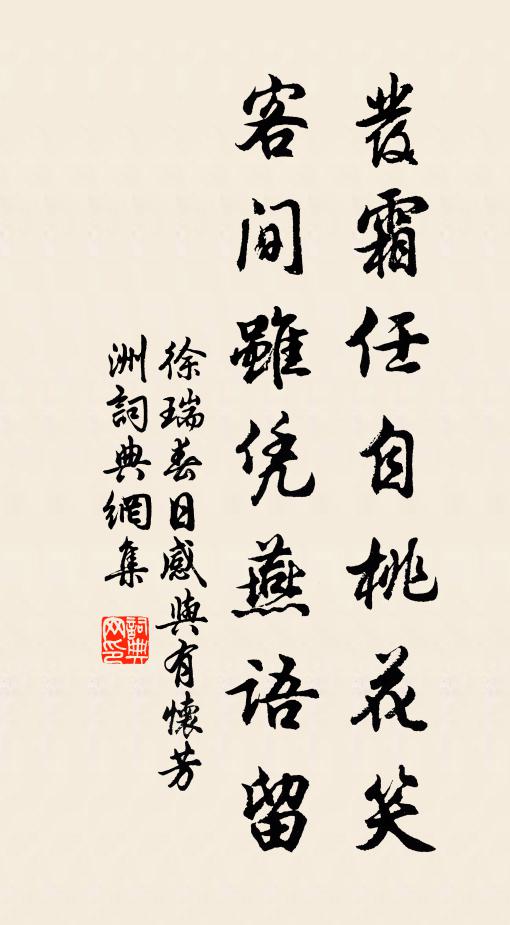 发霜任自桃花笑
客间虽凭燕语留
徐瑞春日感兴有怀芳
洲词典网集
词典网印